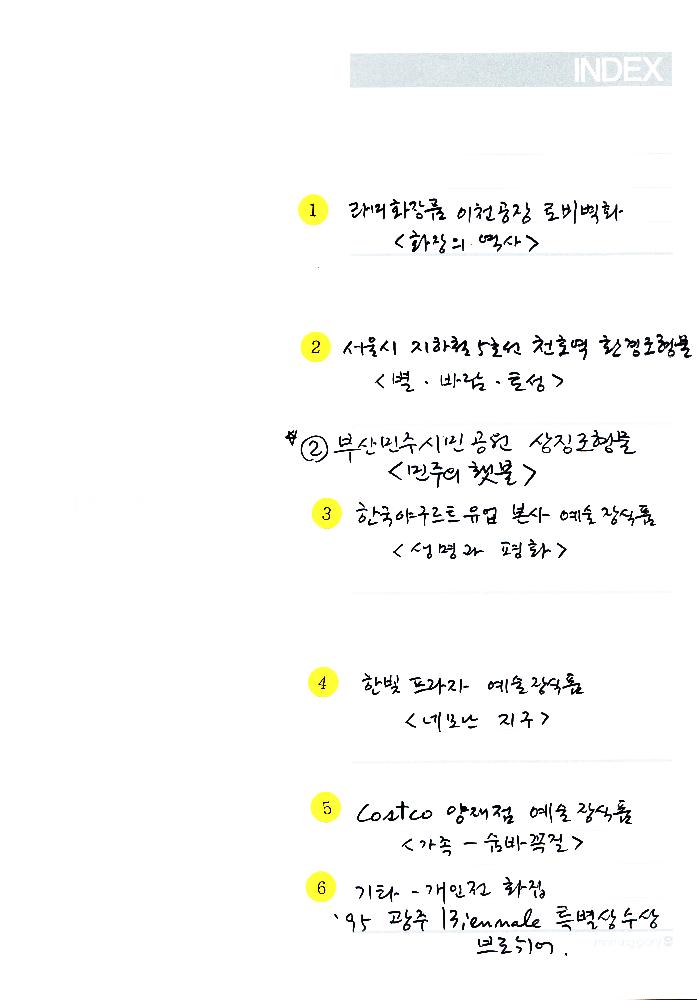 INDEX
1 라미화장품 이천공장 로비벽화
<화장의 역사>
2 서울시 지하철 5호선 천호역 환경조형물
<별 · 바람 · 토성>
② 부산민주시민공원 상징조형물
<민주의 횃불>
3 한국야구르트유업 본사 예술장식품
<생명과 평화>
4 한빛프라자 예술장식품
<네모난 지구>
5 Costco 양재점 예술장식품
<가족 - 숨바꼭질>
6 기타 - 개인전 화집
'95 광주 Biennale 특별상수상
브로슈어.